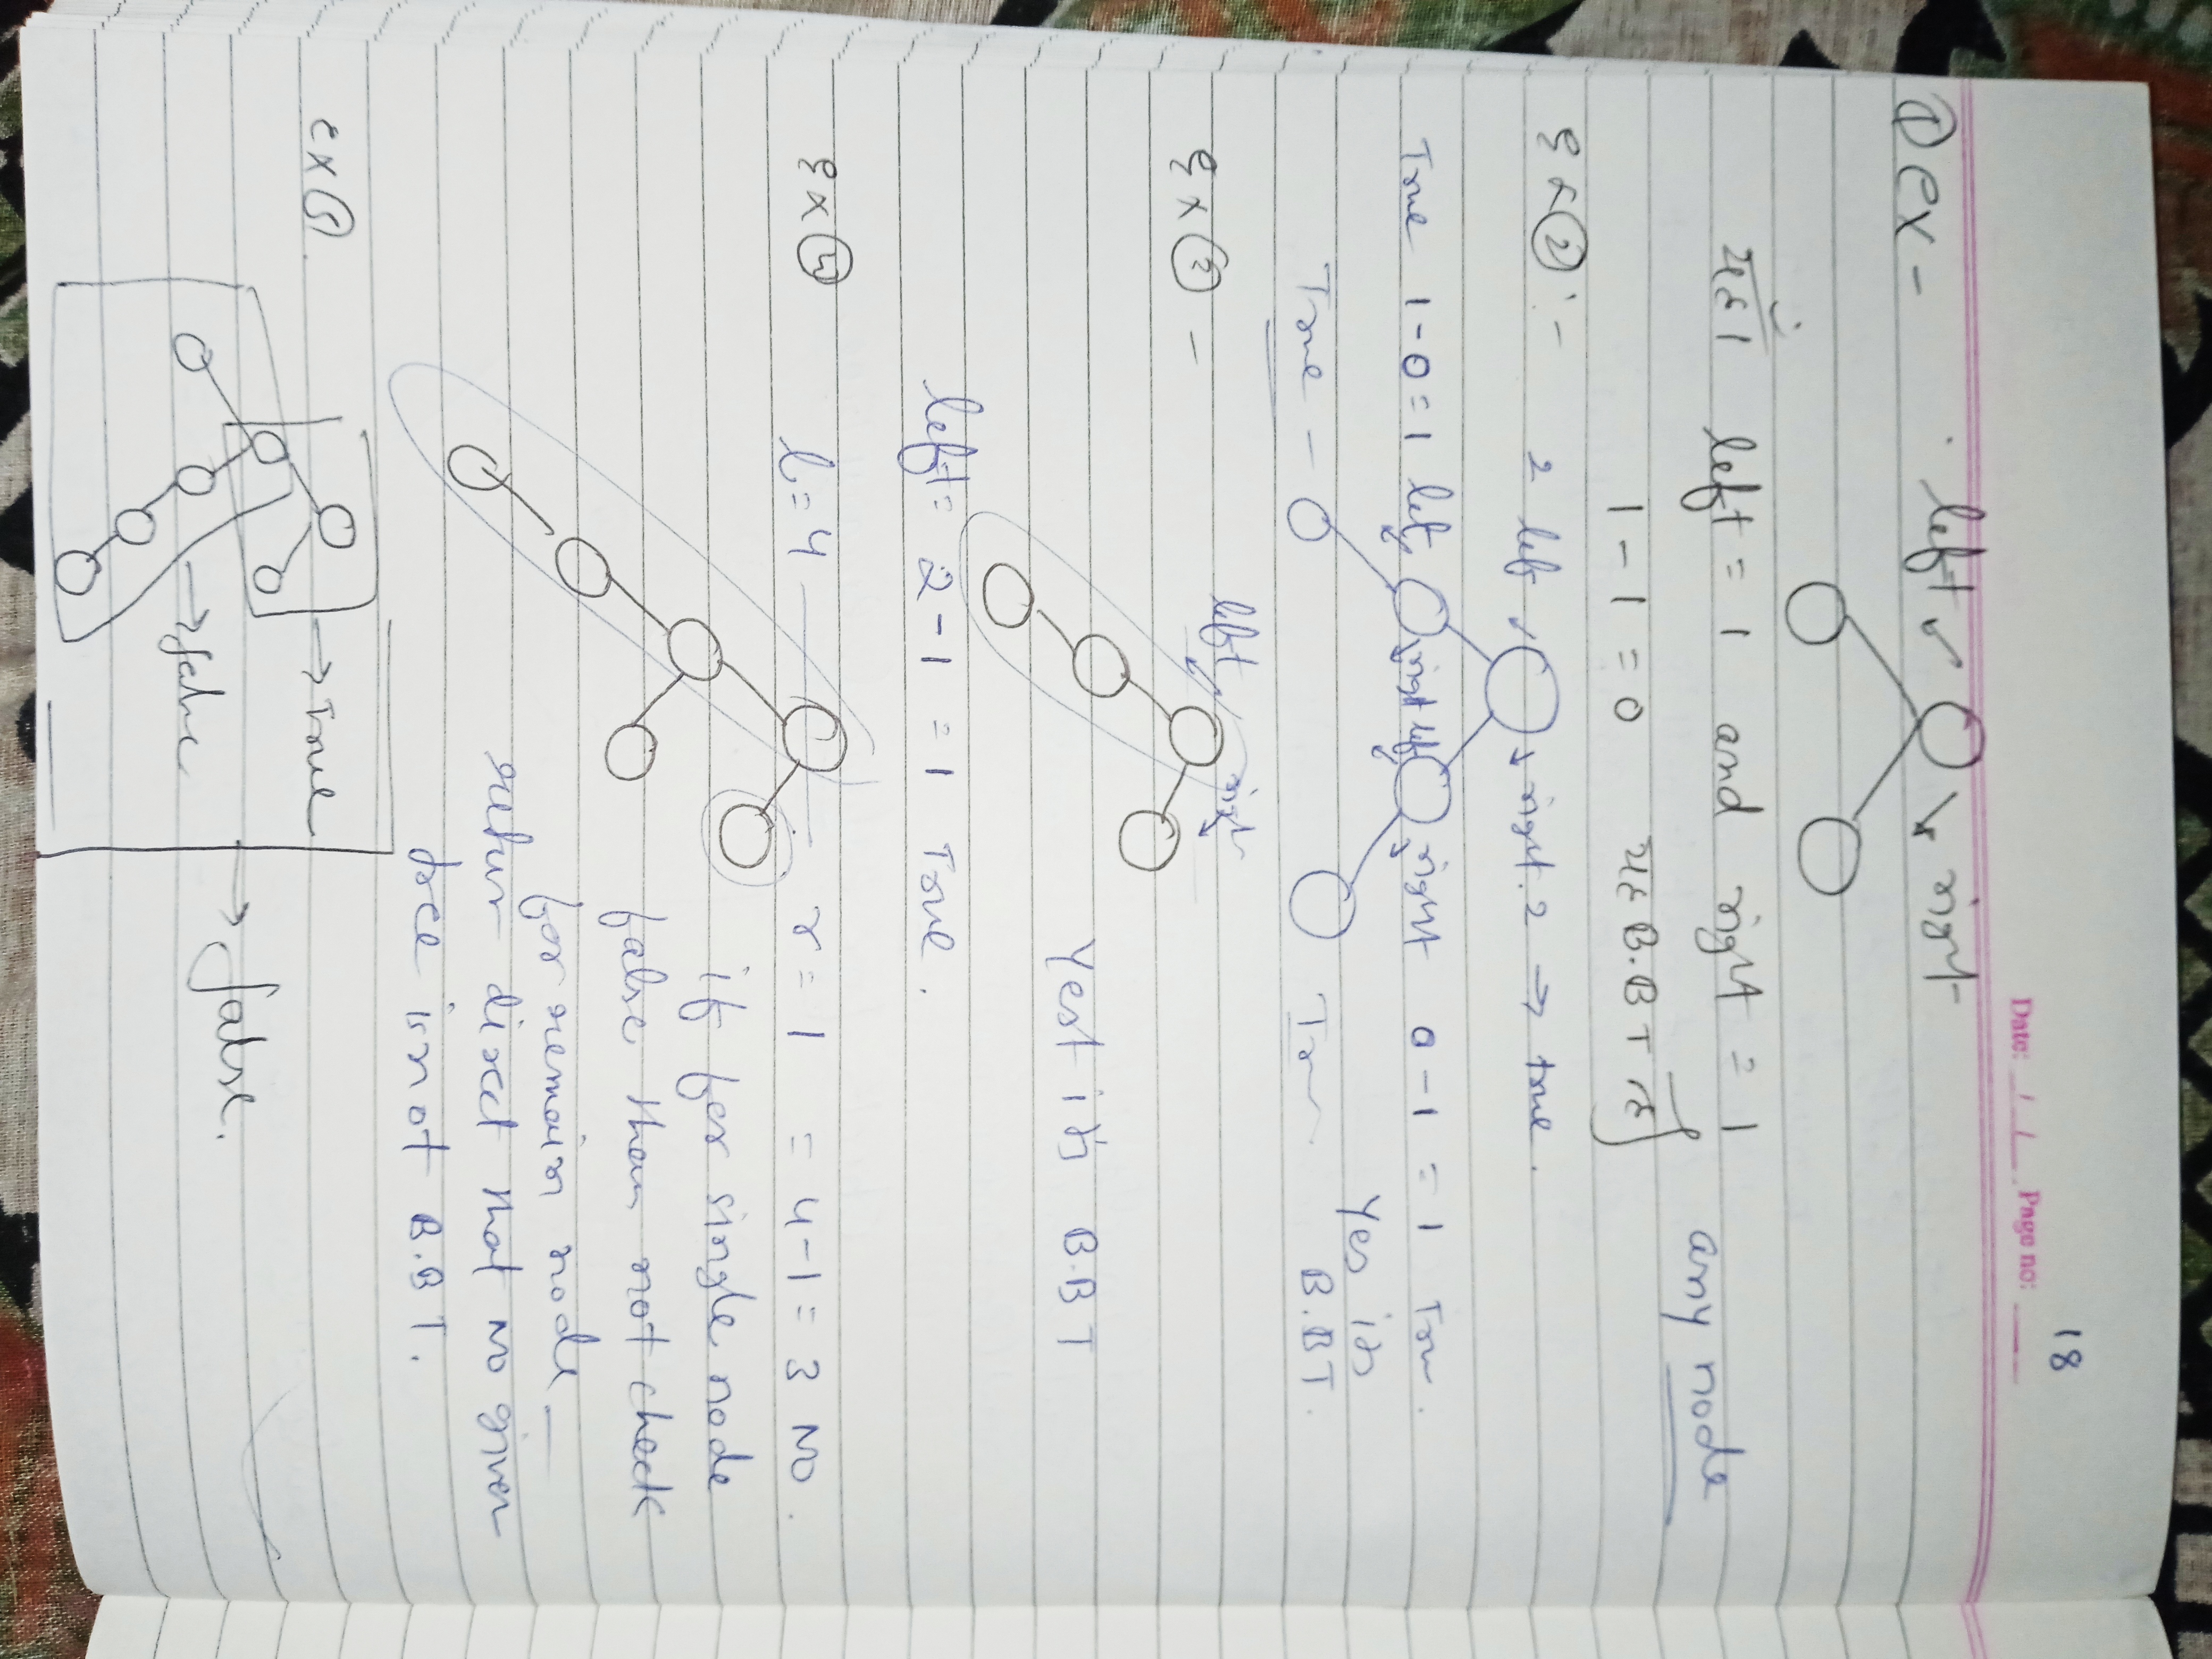 18
Date: / / Page no:
① ex - left right
यहां left = 1 and right = 1
any node
1 - 1 = 0 यह B.BT है
Ex ② :- 2 left right. 2 → true.
True 1-0=1 let right lef right 0-1 = 1 Tru.
Yes its
True - Tr B.BT.
left righ
Ex ③ -
Yest it's B.BT
left = 2-1 = 1 True.
Ex ④ l=4 r = 1 = 4-1 = 3 NO.
if for single node
false than not check
for remain node -
retur direct that NO given
tree is not B.BT.
Ex ⑤. → True
→ false.
→ false